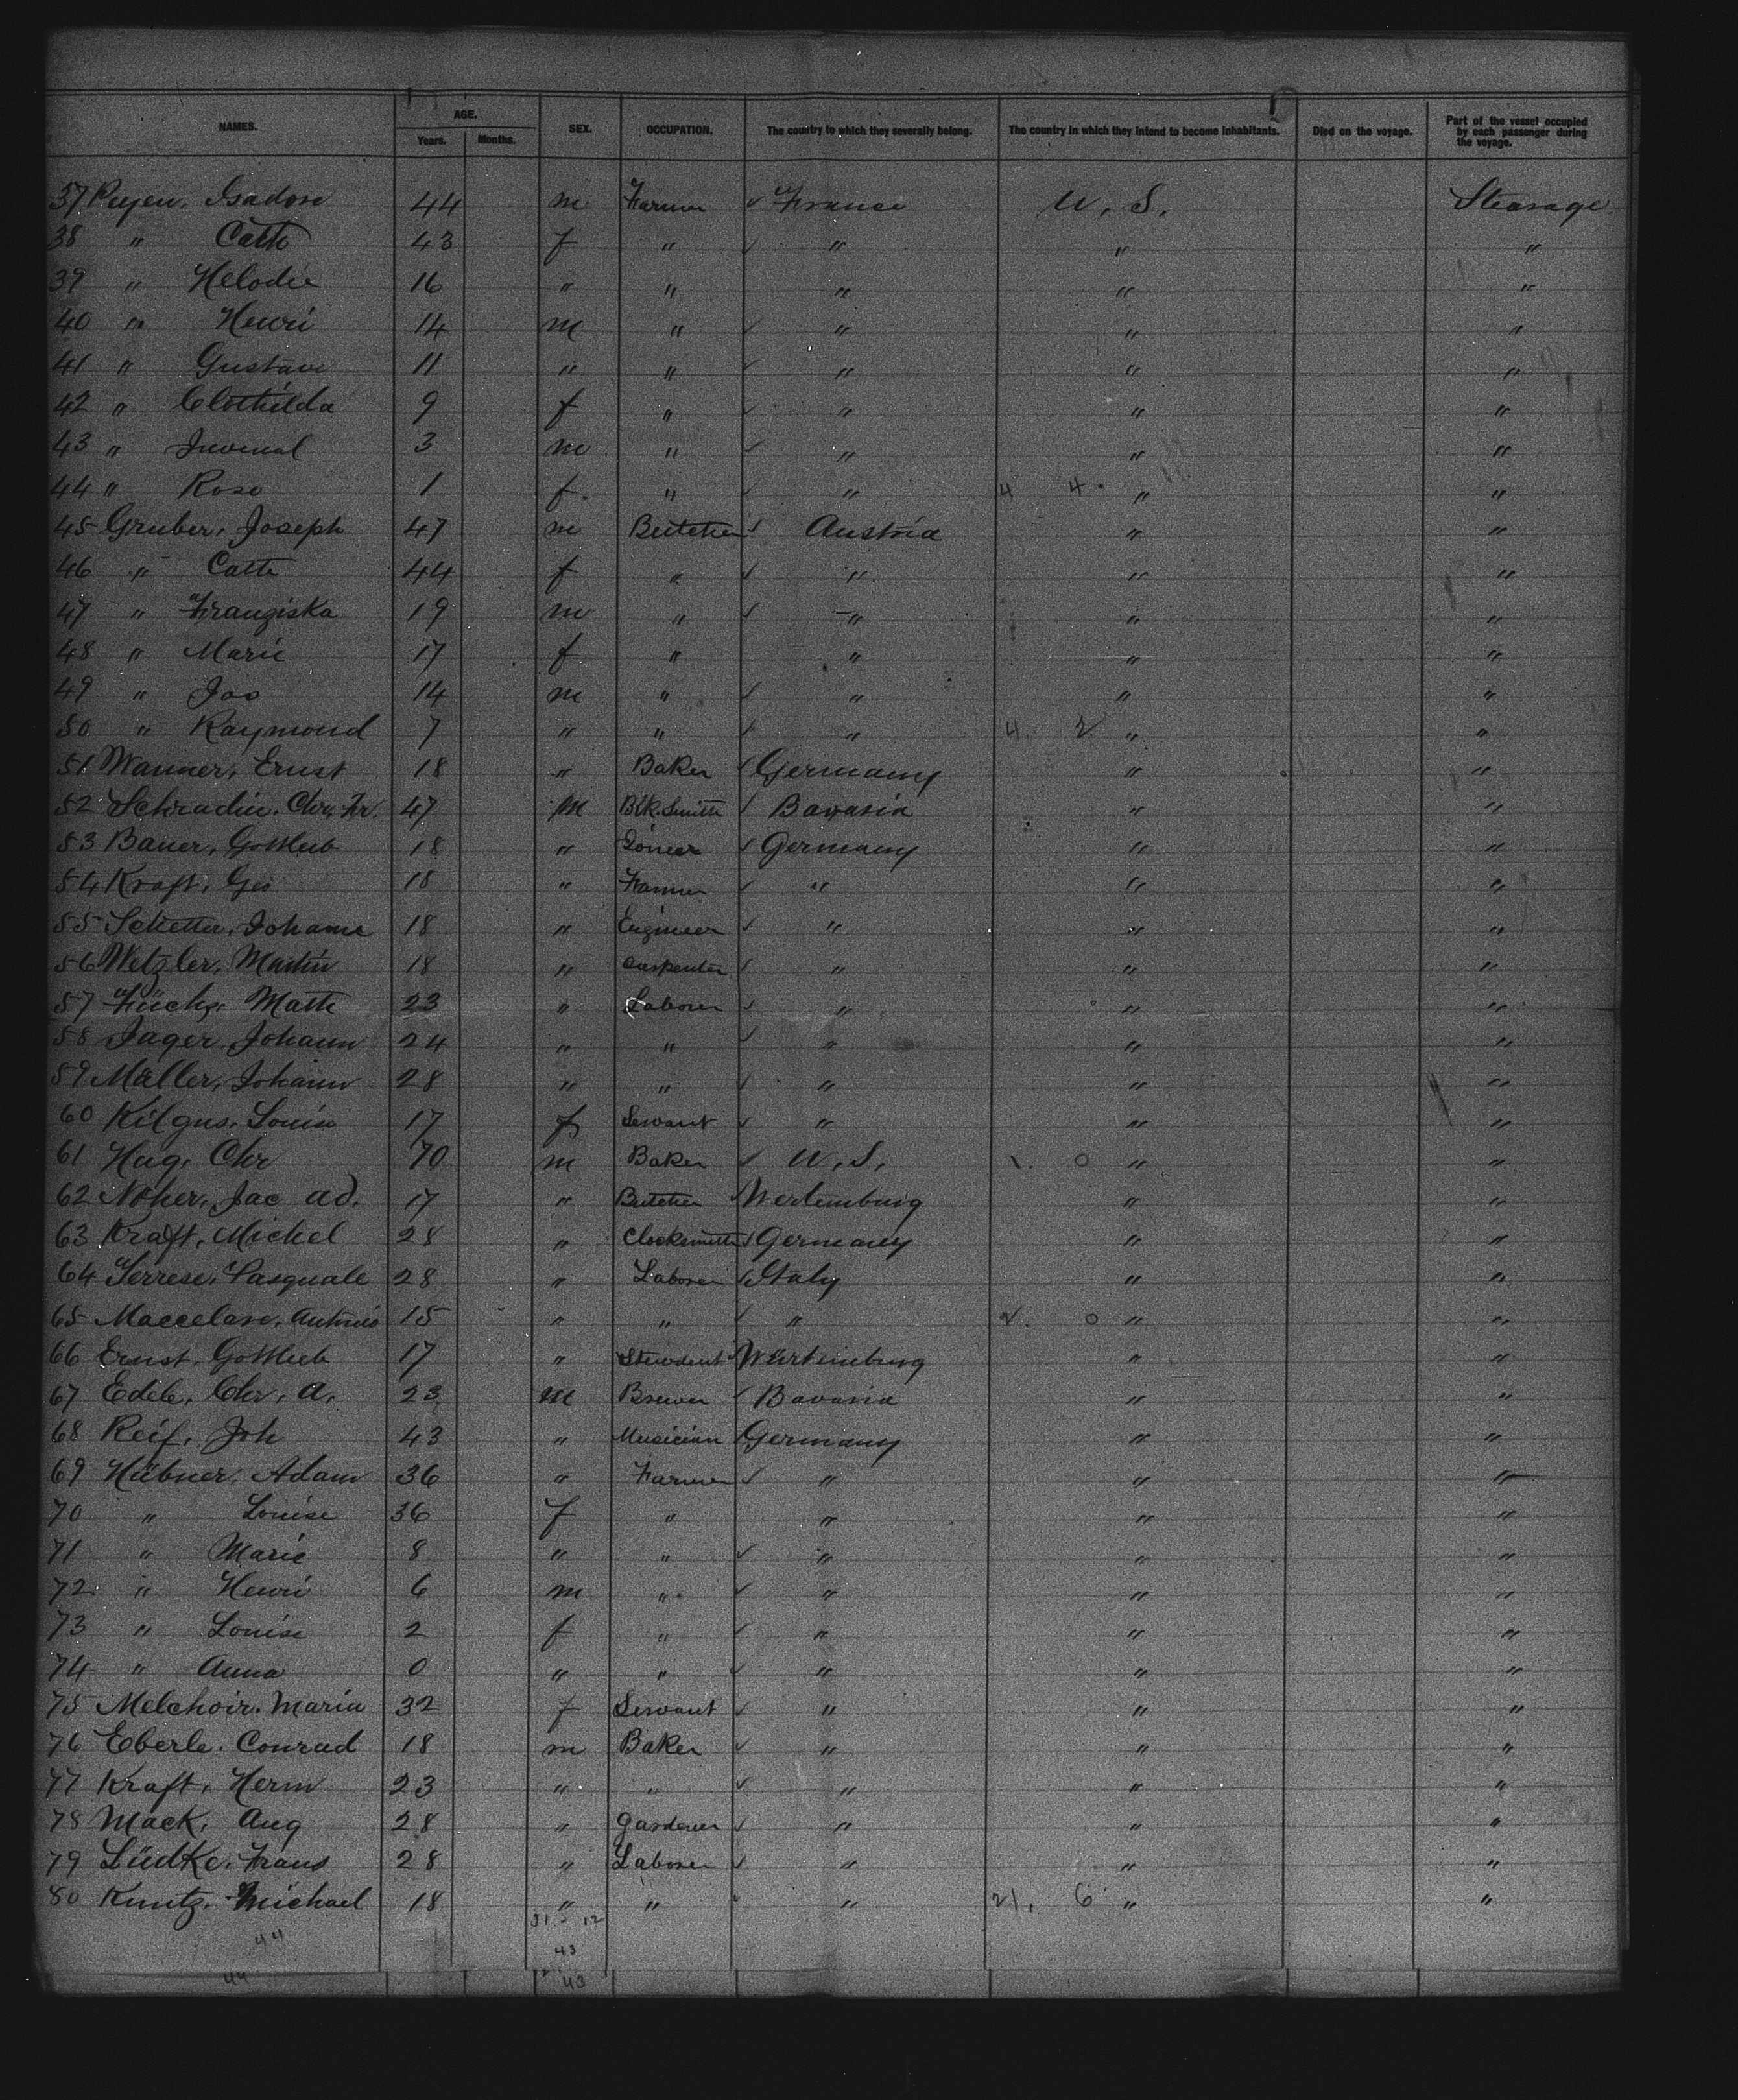 NAMES. AGE. Years. Months. SEX. OCCUPATION. The country to which they severally belong. The country in which they intend to become inhabitants. Died on the voyage. Part of the vessel occupied by each passenger during the voyage.
37 Isadore 44 m Farmer ✓ France U. S. Stearage
38 " Cath 43 f " ✓ " " "
39 " Helodie 16 " " " " "
40 " Henri 14 m " ✓ " " "
41 " Gustave 11 " " ✓ " " "
42 " Clothilda 9 f " ✓ " " "
43 " Juvenal 3 m " ✓ " " "
44 " Rose 1 f. " ✓ " 4 4. " "
45 Gruber, Joseph 47 m Butcher ✓ Austria " "
46 " Cath 44 f " ✓ " " "
47 " Franziska 19 m " ✓ " " "
48 " Marie 17 f " " " "
49 " Jos 14 m " ✓ " " "
50 " Raymond 7 " " ✓ " 4. 2 " "
51 Wanner, Ernst 18 " Baker ✓ Germany " "
52 Schradin. Chr. Fr. 47 m Blk. Smith ✓ Bavaria " "
53 Bauer, Gottlieb 18 " ✓ Germany " "
54 Kraft, Geo 18 " Farmer ✓ " " "
55 Johann 18 " Engineer ✓ " " "
56 Metzler, Martin 18 " Carpenter ✓ " " "
57 Math 23 " Laborer ✓ " " "
58 Jager, Johann 24 " " ✓ " " "
59 Müller, Johann 28 " " ✓ " " "
60 Kilgus, Louise 17 f Servant ✓ " " "
61 Hug, Chr 70 m Baker ✓ U. S. 1. 0 " "
62 Noher, Jac Ad. 17 " Butcher ✓ Wertemburg " "
63 Kraft, Michel 28 " Clocksmith ✓ Germany " "
64 Pasquale 28 " Laborer ✓ Italy " "
65 Antonio 15 " " ✓ " 2. 0 " "
66 Ernst, Gottlieb 17 " Stewdent Würtemburg " "
67 Edele, Chr. A. 23 m Brewer ✓ Bavaria " "
68 Reif, Joh 43 " Musician Germany " "
69 Hübner, Adam 36 " Farmer ✓ " " "
70 " Louise 36 f " " " "
71 " Marie 8 " " ✓ " " "
72 " Henri 6 m " ✓ " " "
73 " Louise 2 f " ✓ " " "
74 " Anna 0 " " ✓ " " "
75 Melchoir. Maria 32 f Servant ✓ " " "
76 Eberle. Conrad 18 m Baker ✓ " " "
77 Kraft, Herm 23 " " ✓ " " "
78 Mack, Aug 28 " Gardener ✓ " " "
79 Lüdke, Frans 28 " Laborer ✓ " " "
80 Kuntz. Michael 18 " " " 21. 6 " "
44 12
43
44 43